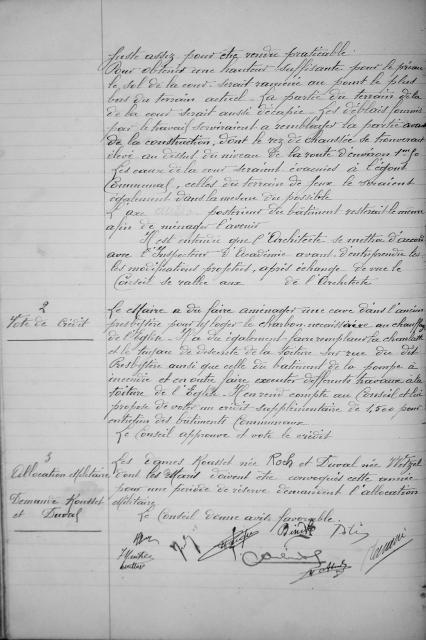 juste assez pour être rendu praticable.
Pour obtenir une hauteur suffisante pour le préau
le sol de la cour serait ramené au point le plus
bas du terrain actuel. La partie du terrain delà
de la cour serait aussi décapée. Les déblais fournis
par le travail serviraient à remblayer la partie avant
de la construction, dont le rez de chaussée se trouverait
élevé au dessus du niveau de la route d'environ
Les eaux de la cour seraient évacuées à l'égout
Communal, celles du terrain de jeux le seraient
également dans la mesure du possible
L'axe postérieur du bâtiment resterait le même
afin de ménager l'avenir
Il est entendu que l'Architecte se mettra d'accord
avec l'Inspecteur d'Académie avant d'entreprendre les
les modifications prévues, après échange de vue le
Conseil se rallie aux de l'Architecte
2
Vote de Crédit
Le Maire a dû faire aménager une cave dans l'ancien
presbytère pour y loger le charbon nécessaire au chauffage
de l'Eglise. Il a dû également faire remplacer la
et le de la toiture sur rue du dit
Presbytère ainsi que celle du bâtiment de la pompe à
incendie et en outre faire exécuter différents travaux à la
toiture de l'Eglise. Il en rend compte au Conseil et lui
propose de voter un crédit supplémentaire de 4,500 pour
entretien des bâtiments Communaux
Le Conseil approuve et vote le crédit
3
Allocation Militaire
Demande Rousset
et Duval
Les dames Rousset née Roch et Duval née Wetzel
dont les Maris doivent être convoqués cette année
pour une période de réserve demandent l'allocation
Militaire
Le Conseil donne avis favorable.